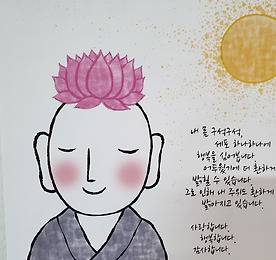 내 몸 구석구석,
세포 하나하나에
행복을 심어봅니다.
어두웠기에 더 환하게
밝힐 수 있습니다.
그로 인해 내 주위도 환하게
밝아지고 있습니다.
사랑합니다.
행복합니다.
감사합니다.